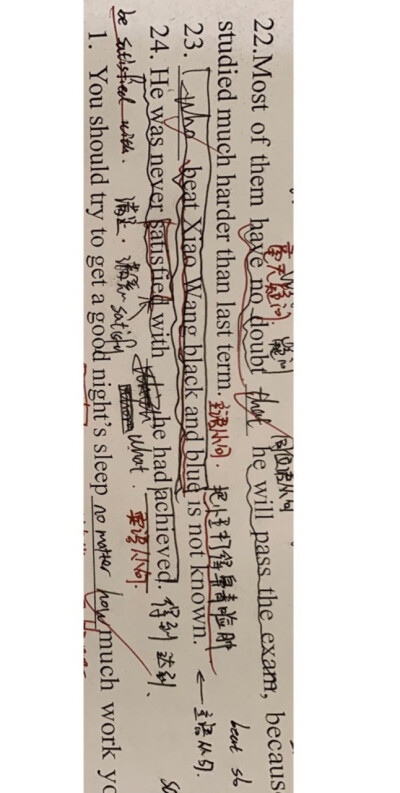 22.Most of them have no doubt that he will pass the exam, becaus
毫无疑问 疑问 同位语从句
studied much harder than last term.
主语从句. 把小王打得鼻青脸肿 beat sb
23. Who beat Xiao Wang black and blue is not known. ← 主语从句.
24. He was never satisfied with he had achieved. 得到 达到.
what. 宾语从句.
be satisfied with. 满足. 满意 satisfy
1. You should try to get a good night's sleep no matter how much work yo